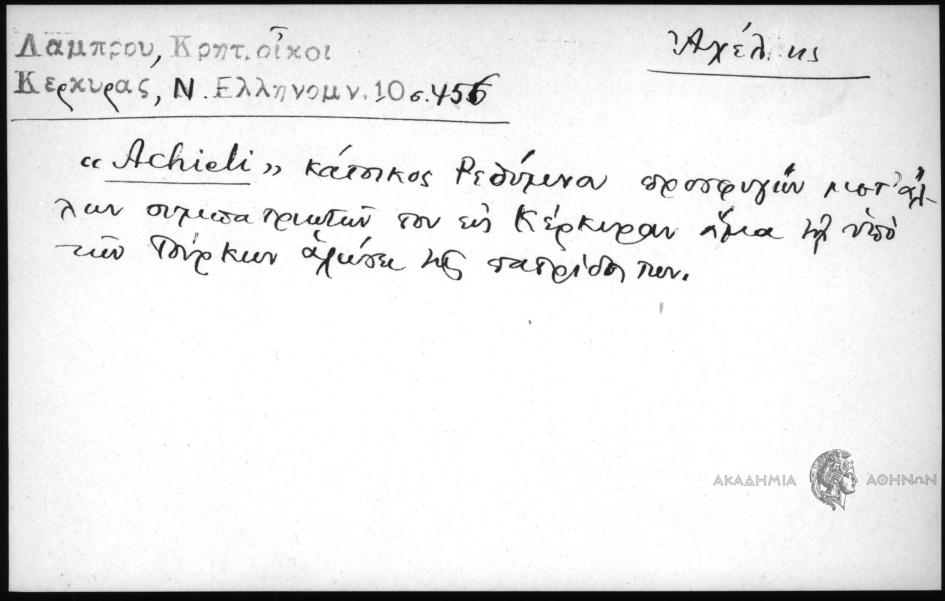 Λάμπρου, Κρητ. οἶκοι
Ἀχέλης
Κερκυρας, Ν. Ελληνομν. 10 σ. 456
“Achieli” κάτοικος Ρεθύμνου προσφυγών μετ' ἄλ-
λων συμπατριωτῶν του εἰς Κέρκυραν ἅμα τῇ ὑπὸ
τῶν Τούρκων ἁλώσει τῆς πατρίδος των.
ΑΚΑΔΗΜΙΑ ΑΘΗΝΩΝ